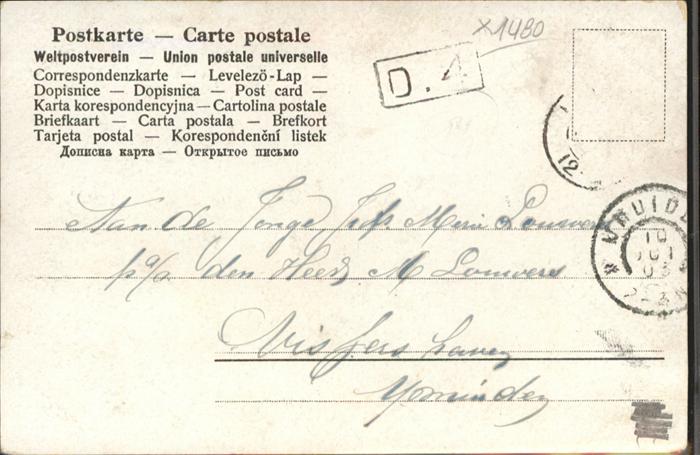 ×1480
Postkarte — Carte postale
Weltpostverein — Union postale universelle
Correspondenzkarte — Levelező-Lap —
Dopisnice — Dopisnica — Post card —
Karta korespondencyjna — Cartolina postale
Briefkaart — Carta postala — Brefkort
Tarjeta postal — Korespondenční listek
Дописна карта — Открытое письмо
D. 4
12
MUIDE
10
Aan de Jonge Mein Louwers
p/a den Heer M Louwers
Vissers haven
Ymuiden